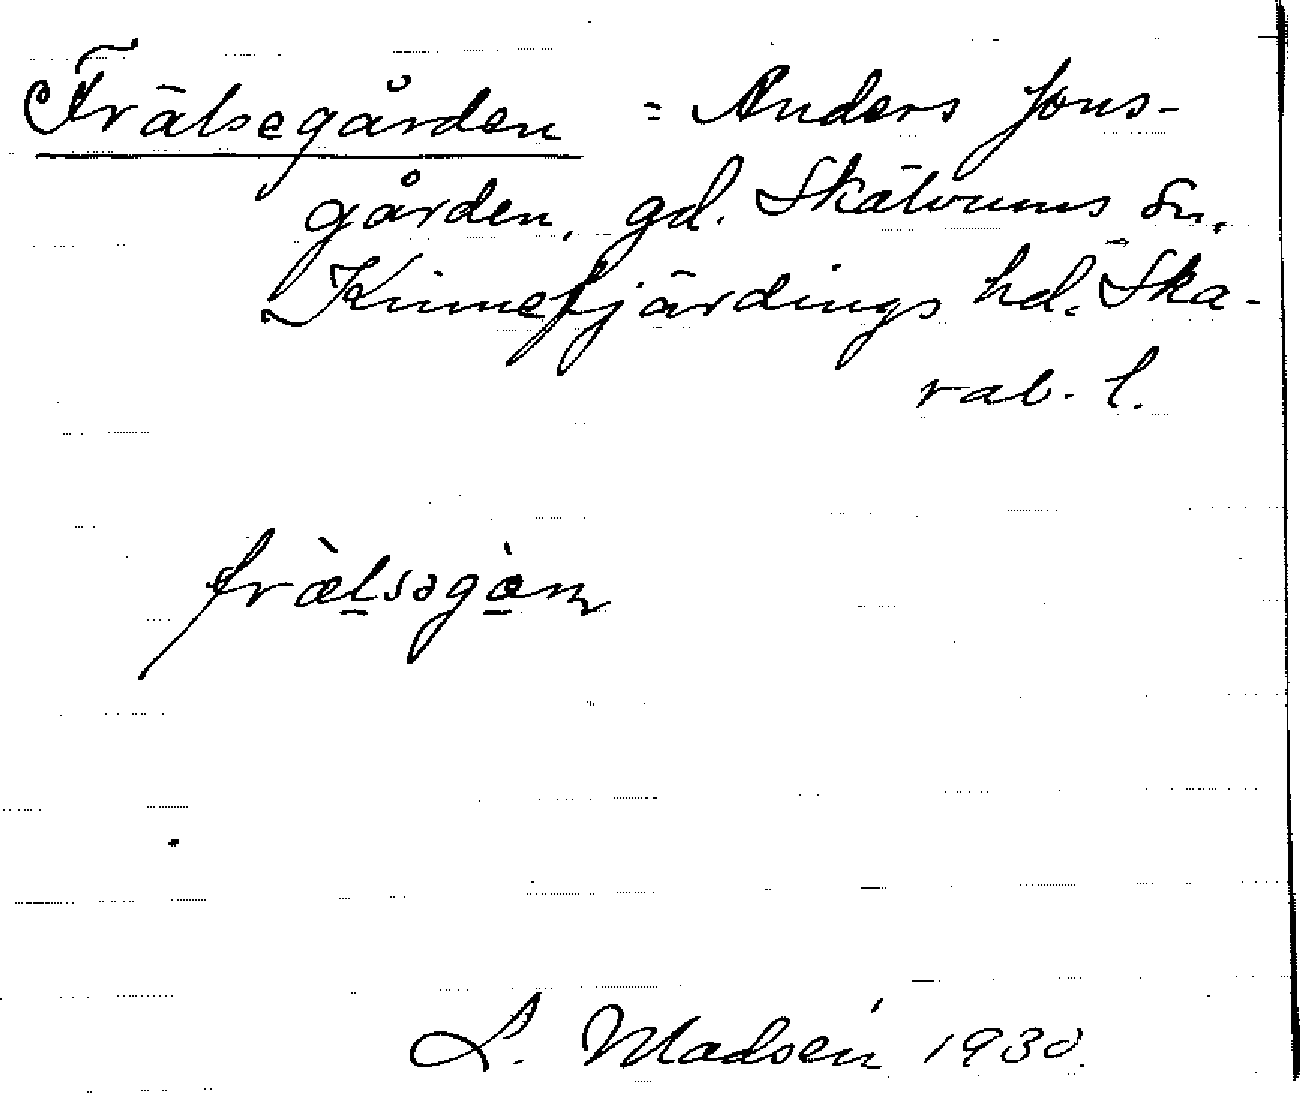 Frälsegården = Anders Jons-
gården, gd. Skälvums sn,
Kinnefjärdings hd. Ska-
rab. l.
fràlsəgàn
L. Madsén 1930.